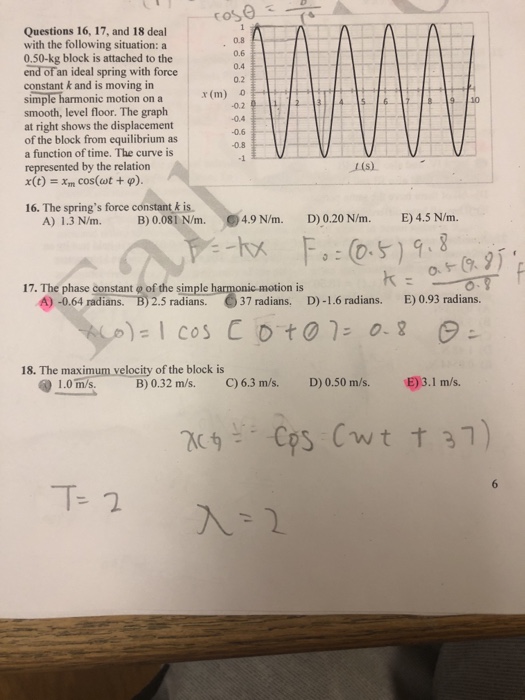 cosθ =
Questions 16, 17, and 18 deal
with the following situation: a
0.50-kg block is attached to the
end of an ideal spring with force
constant k and is moving in
simple harmonic motion on a
smooth, level floor. The graph
at right shows the displacement
of the block from equilibrium as
a function of time. The curve is
represented by the relation
x(t) = xₘ cos(ωt + φ).
1
0.8
0.6
0.4
0.2
x (m) 0
-0.2
-0.4
-0.6
-0.8
-1
0 1 2 3 4 5 6 7 8 9 10
t (s)
16. The spring's force constant k is
A) 1.3 N/m. B) 0.081 N/m. 4.9 N/m. D) 0.20 N/m. E) 4.5 N/m.
F = -kx F₀ = (0.5) 9.8
k = 0.5(9.8)
0.8
17. The phase constant φ of the simple harmonic motion is
A) -0.64 radians. B) 2.5 radians. 37 radians. D) -1.6 radians. E) 0.93 radians.
x(0) = 1 cos [ 0 + θ ] = 0.8 θ =
18. The maximum velocity of the block is
1.0 m/s. B) 0.32 m/s. C) 6.3 m/s. D) 0.50 m/s. E) 3.1 m/s.
cos (wt + 37)
T = 2
λ = 2
6
Fall